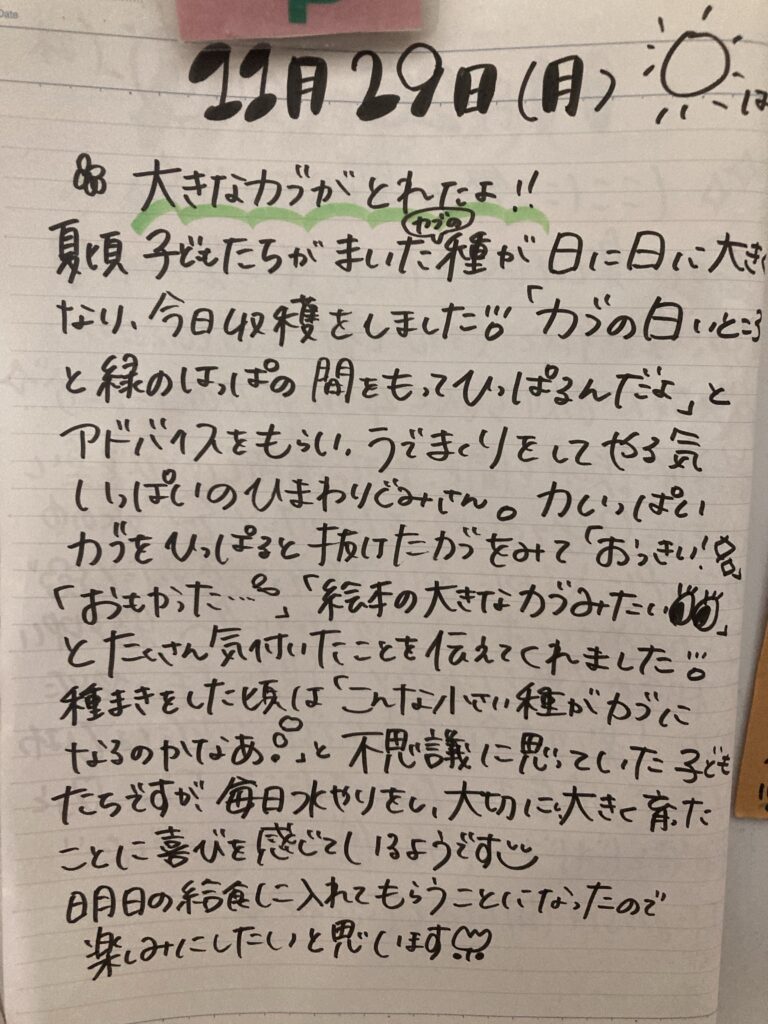 Date
P
11月29日(月)
は
大きなカブがとれたよ!!
カブの
夏頃 子どもたちが まいた種が 日に日に大きく
なり、今日収穫をしました!!「カブの白いところ
と緑のはっぱの間をもってひっぱるんだよ」と
アドバイスをもらい、うでまくりをしてやる気
いっぱいのひまわりぐみさん。力いっぱい
カブをひっぱると抜けたカブをみて「おっきい!」
「おもかった…」「絵本の大きなカブみたい」
とたくさん気付いたことを伝えてくれました!!
種まきをした頃は「こんな小さい種がカブに
なるのかなあ?」と不思議に思っていた子ども
たちですが、毎日水やりをし、大切に大きく育った
ことに喜びを感じているようです
明日の給食に入れてもらうことになったので
楽しみにしたいと思います